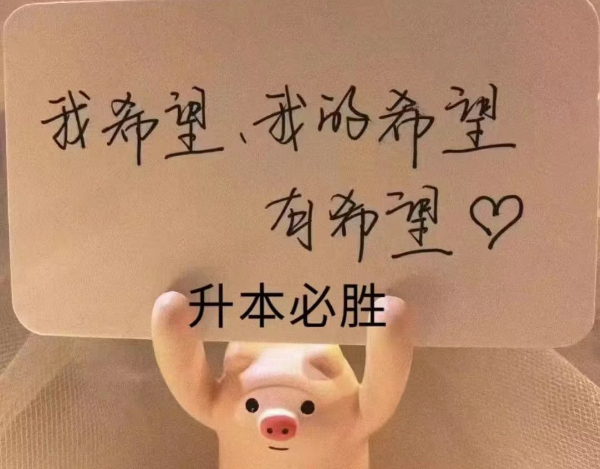 我希望、我的希望
有希望♡
升本必胜